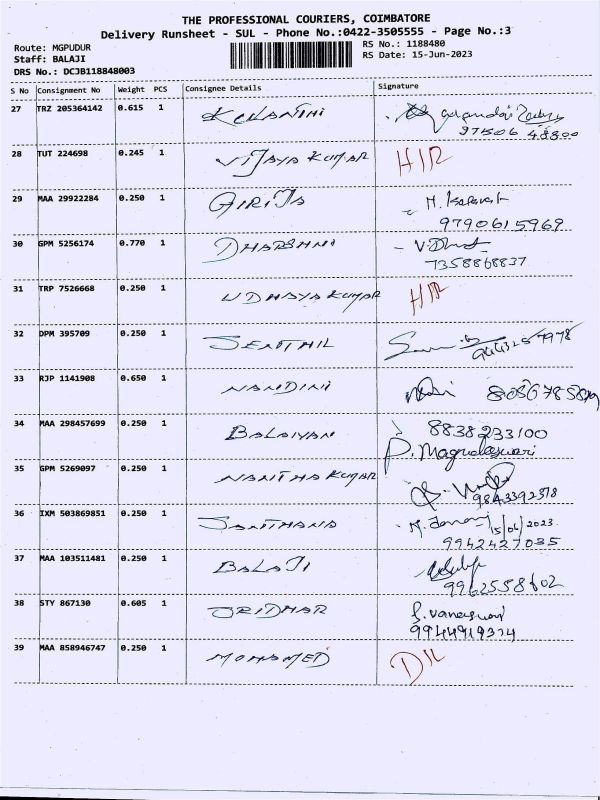 THE PROFESSIONAL COURIERS, COIMBATORE
Delivery Runsheet - SUL - Phone No.:0422-3505555 - Page No.:3
Route: MGPUDUR
RS No.: 1188480
Staff: BALAJI
RS Date: 15-Jun-2023
DRS No.: DCJB118848003
S No Consignment No Weight PCS Consignee Details Signature
27 TRZ 205364142 0.615 1
97506 48800
28 TUT 224698 0.245 1 VIJAYA KUMAR HIR
29 MAA 29922284 0.250 1 GIRIJA
9790615969
30 GPM 5256174 0.770 1 DHARSHNI
7358868837
31 TRP 7526668 0.250 1 UDHAYA KUMAR HIR
32 DPM 395709 0.250 1 SENTHIL
33 RJP 1141908 0.650 1 NANDINI
34 MAA 298457699 0.250 1 BALAIYAN 8838233100
35 GPM 5269097 0.250 1 NANTHA KUMAR
9843392378
36 IXM 503869851 0.250 1 SANTHANA 15/06/2023
9942427035
37 MAA 103511481 0.250 1 BALAJI
9962558602
38 STY 867130 0.605 1 SRIDHAR
9944919374
39 MAA 858946747 0.250 1 MOHAMED DIL